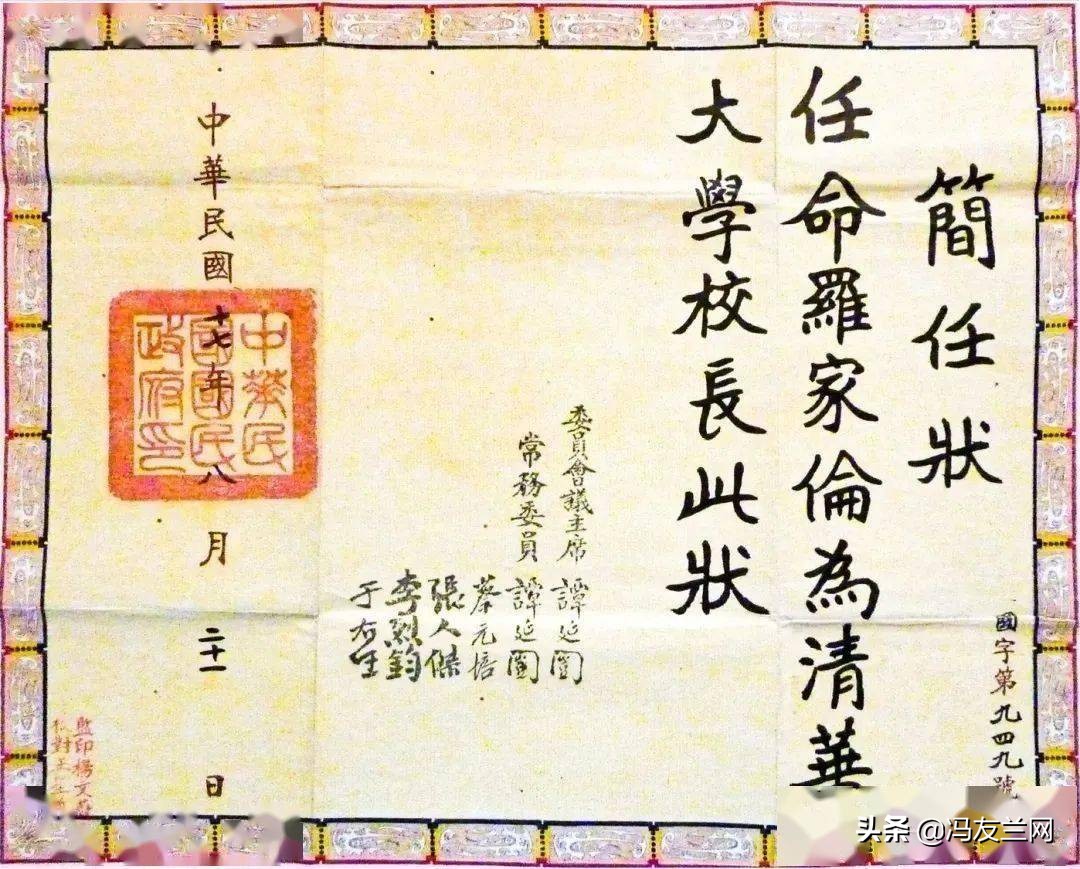 簡任狀
任命羅家倫為清華
大學校長此狀
國字第九四九號
委員會議主席 譚延闓
常務委員 譚延闓
蔡元培
張人傑
李烈鈞
于右任
中華民國十七年八月二十一日
中華民
國國民
政府印
監印楊文
校對王
头条 @冯友兰网